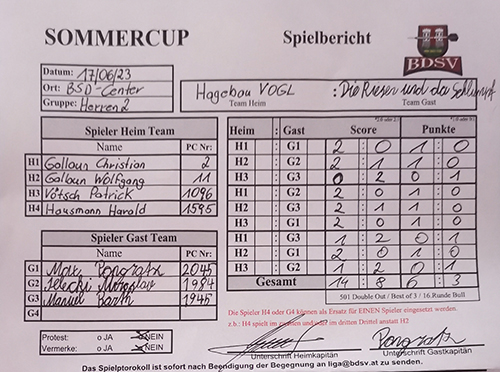 SOMMERCUP Spielbericht
BDSV
Datum: 17/06/23
Ort: BSD-Center
Gruppe: Herren 2
Hagebau VOGL : Die Riesen und das Schlumpf
Team Heim Team Gast
Spieler Heim Team
Name PC Nr:
H1 Golloun Christian 2
H2 Golloun Wolfgang 11
H3 Vötsch Patrick 1096
H4 Hausmann Harald 1595
Spieler Gast Team
Name PC Nr:
G1 Max. Pongratz 2045
G2 Miroslav 1984
G3 Manuel Barth 1945
G4
Heim : Gast Score Punkte
H1 : G1 2 : 0 1 : 0
H2 : G2 2 : 1 1 : 0
H3 : G3 0 : 2 0 : 1
H1 : G2 2 : 0 1 : 0
H2 : G3 2 : 1 1 : 0
H3 : G1 2 : 1 1 : 0
H1 : G3 1 : 2 0 : 1
H2 : G1 2 : 0 1 : 0
H3 : G2 1 : 2 0 : 1
Gesamt 14 : 8 6 : 3
501 Double Out / Best of 3 / 16.Runde Bull
Die Spieler H4 oder G4 können als Ersatz für EINEN Spieler eingesetzt werden.
z.b.: H4 spielt im zweiten und/oder im dritten Drittel anstatt H2
Protest: o JA NEIN
Vermerke: o JA NEIN
Pongratz
Unterschrift Heimkapitän Unterschrift Gastkapitän
Das Spielprotokoll ist sofort nach Beendigung der Begegnung an liga@bdsv.at zu senden.